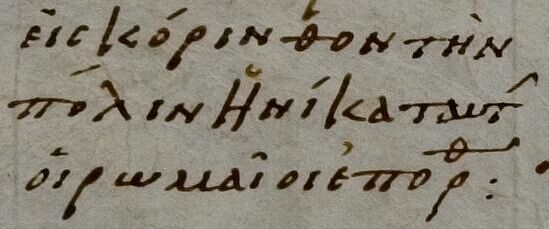 εἰς κόρινθον τὴν
πόλιν ἡνίκα ταύτ
οἱ ρωμαῖοι ἐπορθ: